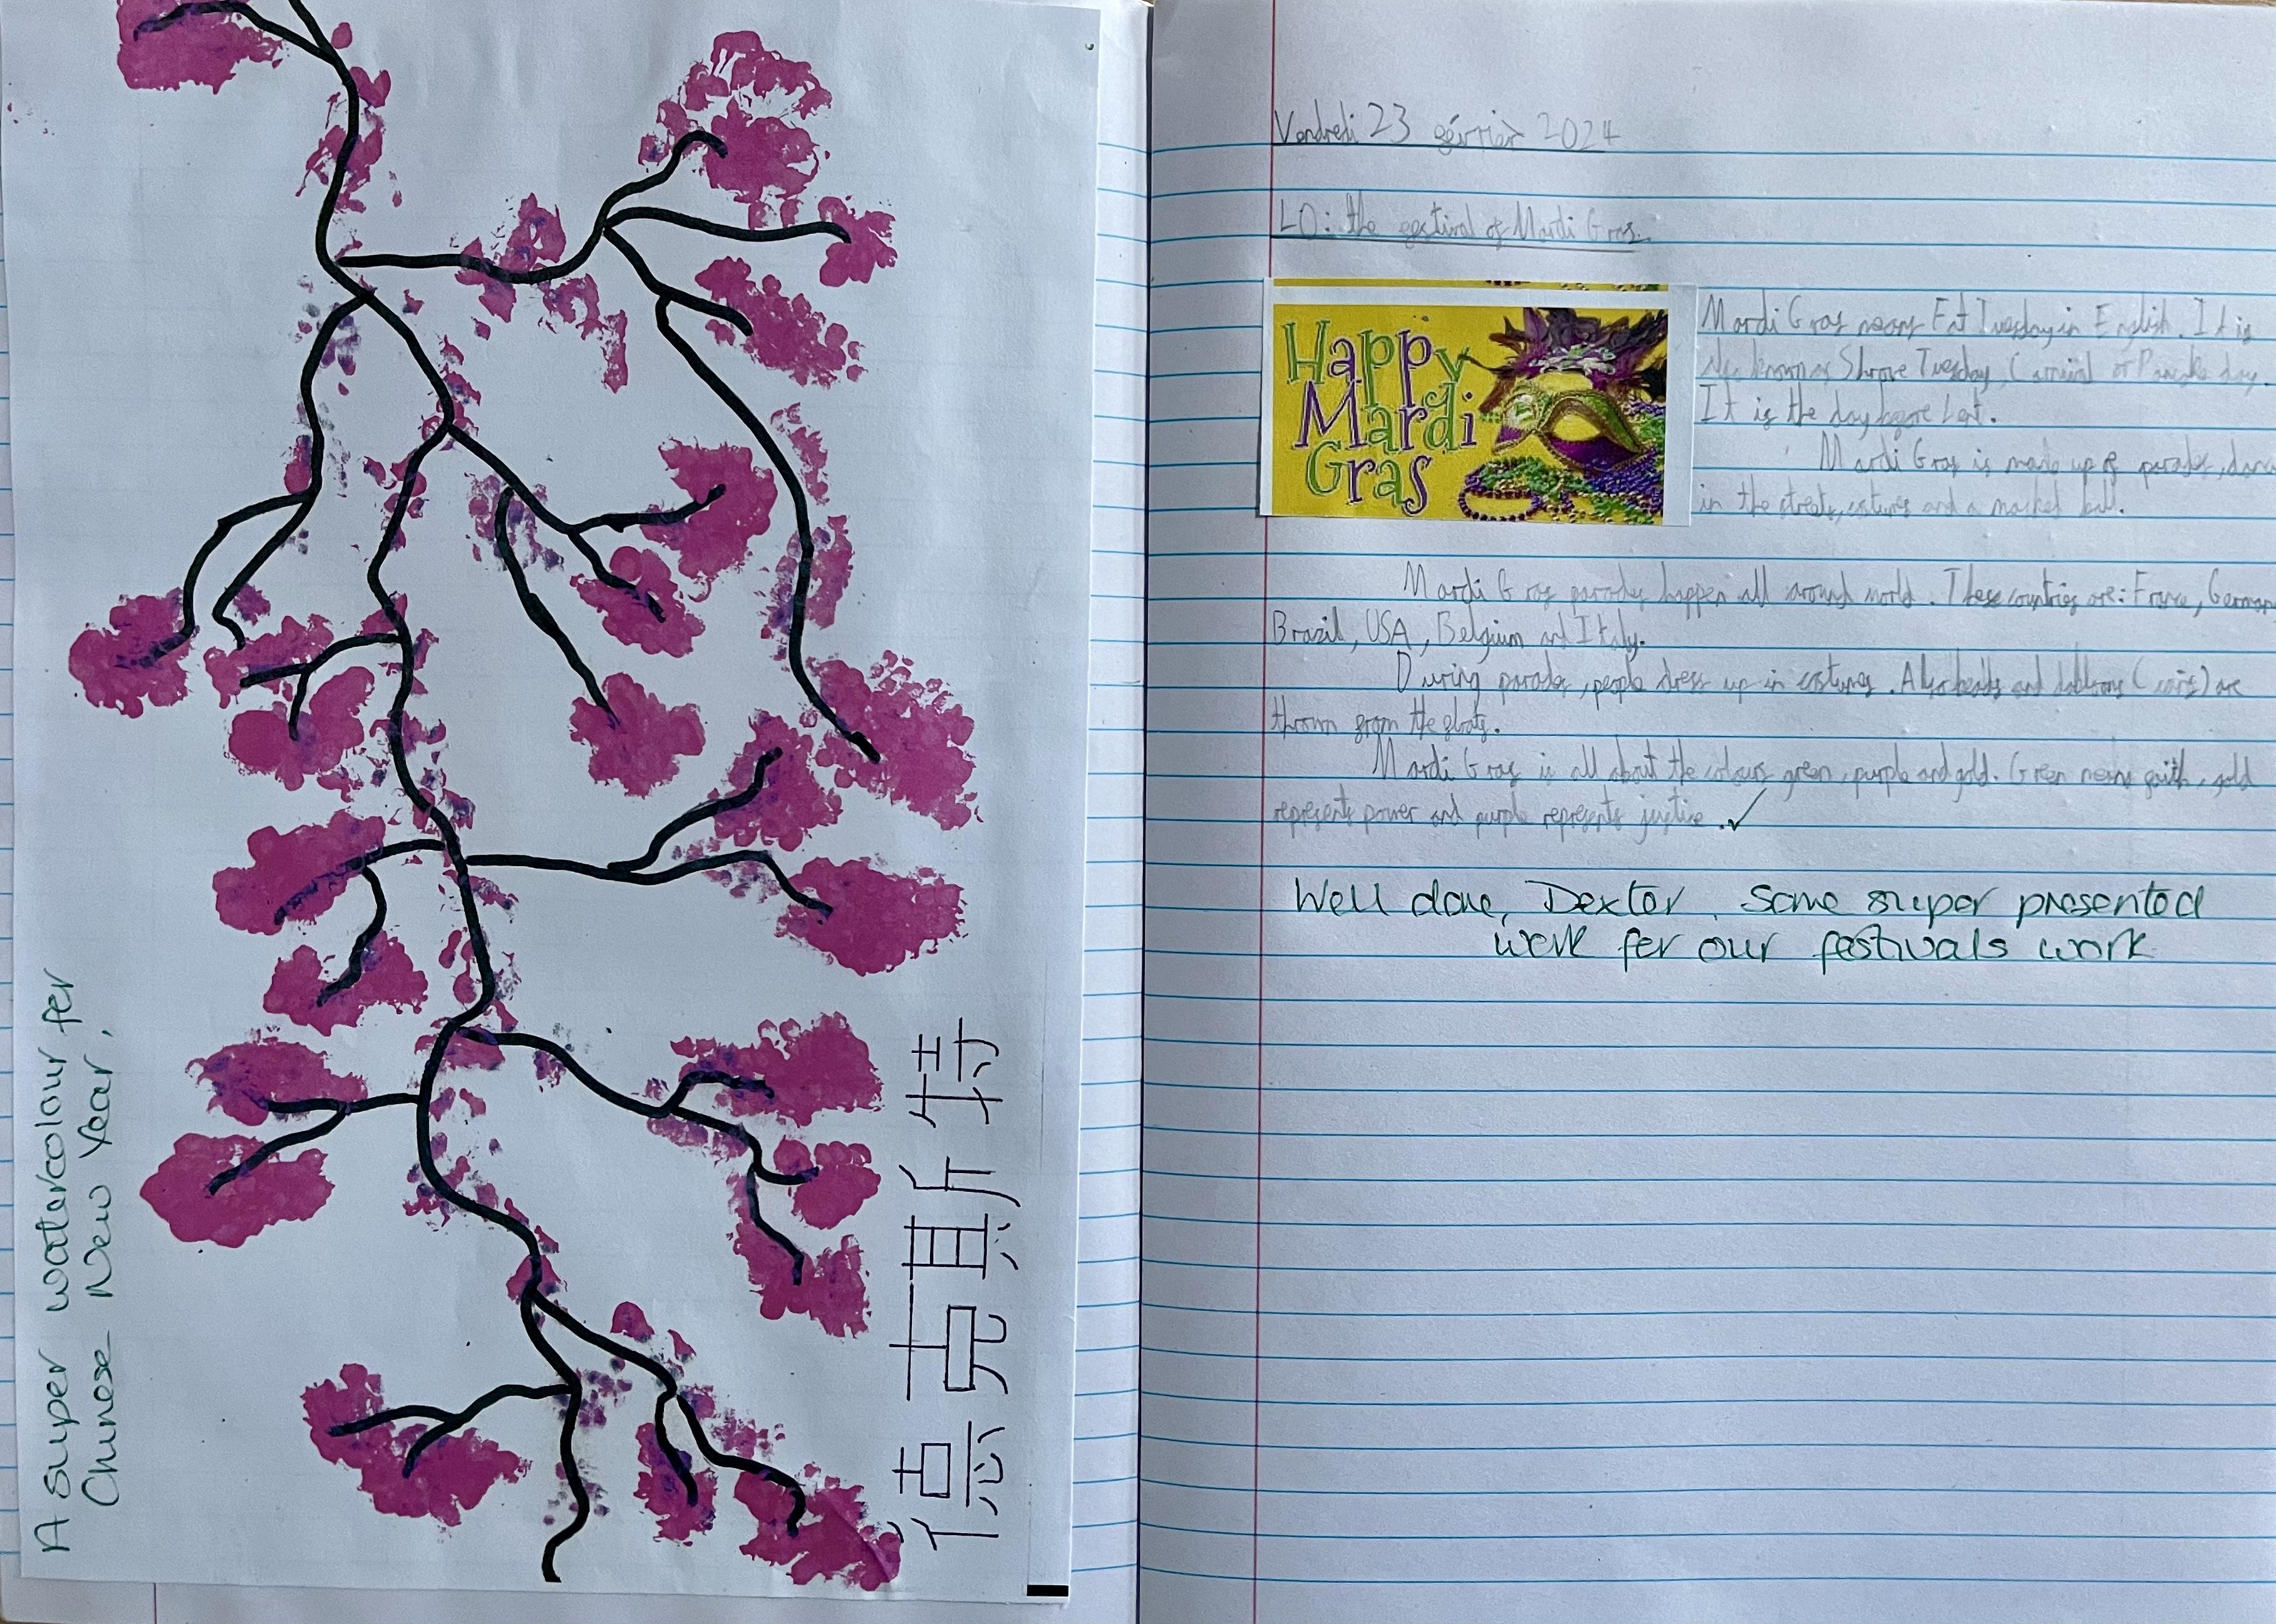 A super watercolour for
Chinese New Year,
德克斯特
Vendredi 23 février 2024
LO: the festival of Mardi Gras.
Happy
Mardi
Gras
Mardi Gras means Fat Tuesday in English. It is
also known as Shrove Tuesday, Carnival or Pancake day.
It is the day before Lent.
Mardi Gras is made up of parades, danc
in the streets, costumes and a masked ball.
Mardi Gras parades happen all around world. These countries are: France, German
Brazil, USA, Belgium and Italy.
During parades, people dress up in costumes. Also beads and dubloons (coins) are
thrown from the floats.
Mardi Gras is all about the colours green, purple and gold. Green means faith, gold
represents power and purple represents justice. ✓
Well done, Dexter. Some super presented
work for our festivals work